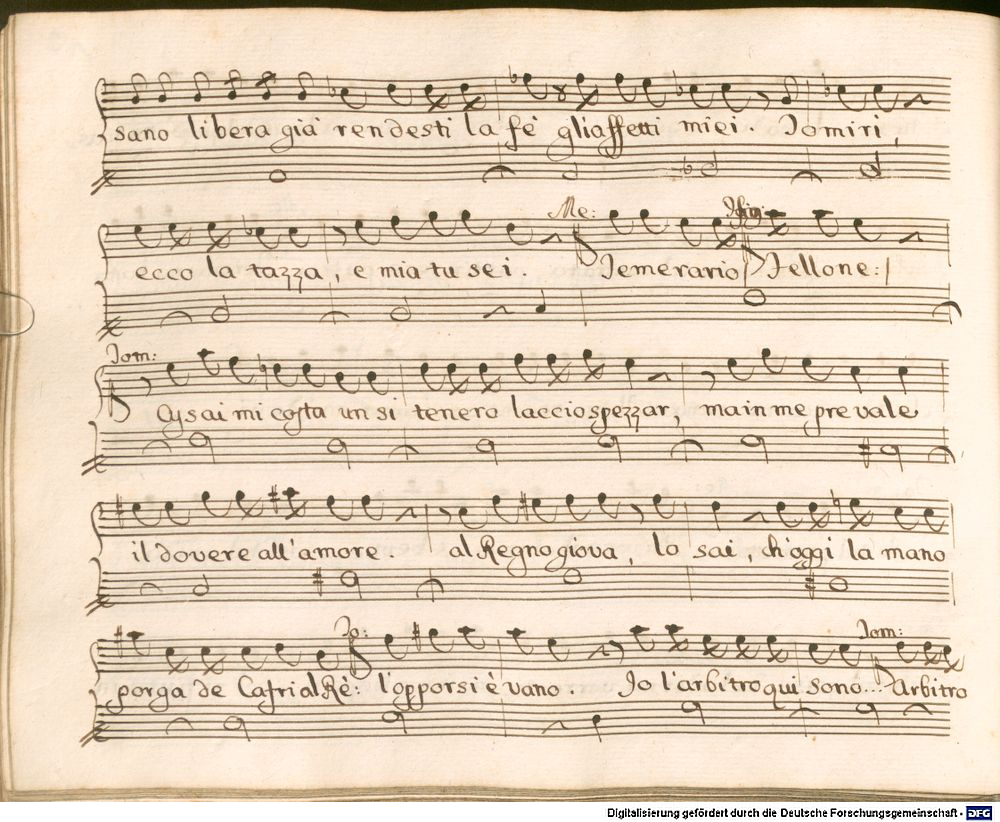 sano libera già rendesti la fè gliaffetti miei. Jomiri,
Me:
ecco la tazza, e mia tu sei. Temerario Fellone:
Jom:
sai mi costa un si tenero laccio spezzar, ma in me prevale
il dovere all'amore. al Regno giova, lo sai, ch'oggi la mano
Jo: Jom:
porga de Cafri al Rè: l'opporsi è vano. Jo l'arbitro qui sono... Arbitro
Digitalisierung gefördert durch die Deutsche Forschungsgemeinschaft - DFG